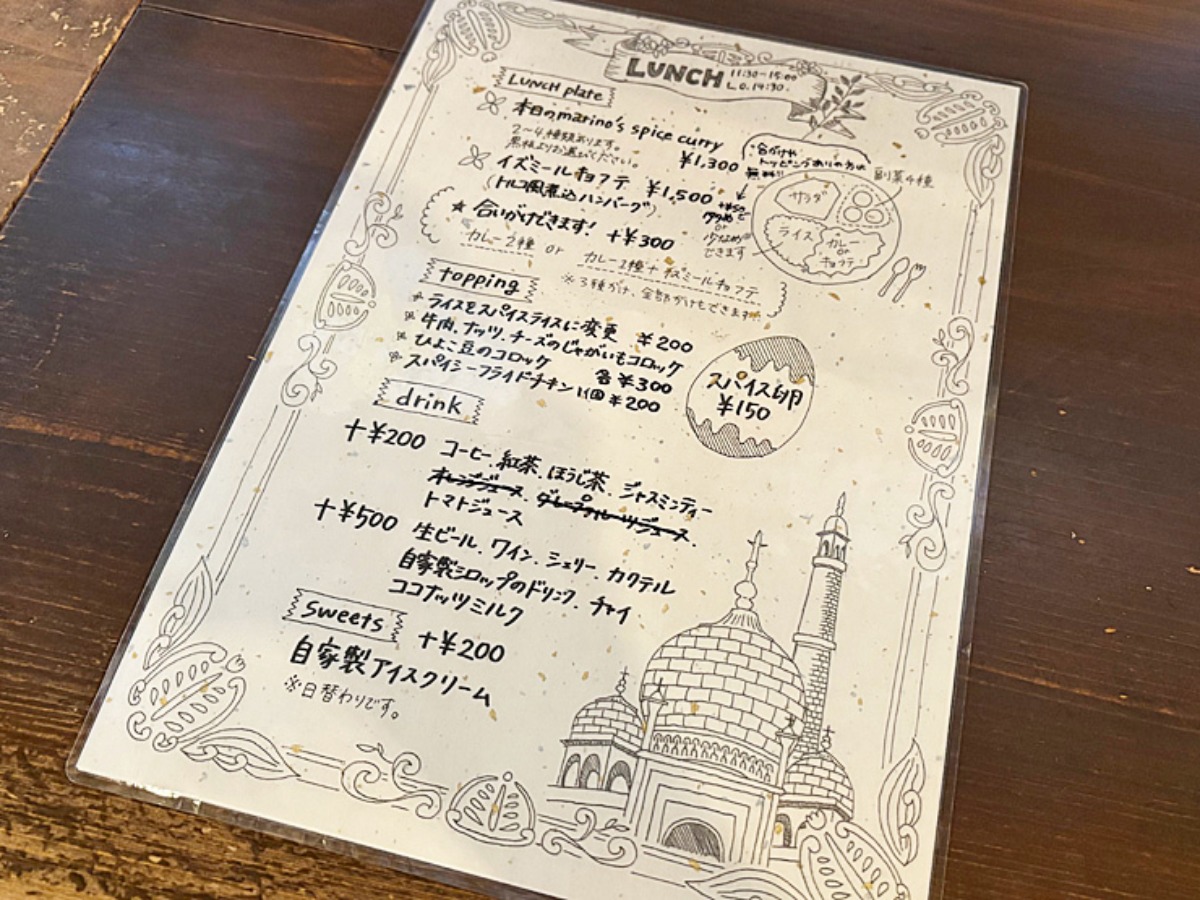 LUNCH 11:30-15:00
L.O. 14:30.
LUNCH plate
本日のmarino's spice curry
2～4種類あります。
黒板よりお選びください。
¥1,300
イズミールキョフテ ¥1,500
(トルコ風煮込ハンバーグ)
★ 合いがけできます! +¥300
カレー2種 or カレー1種+イズミールキョフテ
※3種がけ、全部がけもできます
合がけや
トッピングありの方は
無料!!
副菜4種
サラダ
ライス
カレー
or
キョフテ
+¥50
で
or
少なめ
できます
topping
※ ライスをスパイスライスに変更 ¥200
※ 牛肉、ナッツ、チーズのじゃがいもコロッケ
※ ひよこ豆のコロッケ 各¥300
※ スパイシーフライドチキン 1個 ¥200
スパイス卵
¥150
drink
+¥200 コーヒー、紅茶、ほうじ茶、ジャスミンティー
オレンジジュース、グレープフルーツジュース、
トマトジュース
+¥500 生ビール、ワイン、シェリー、カクテル
自家製シロップのドリンク、チャイ
ココナッツミルク
sweets +¥200
自家製アイスクリーム
※日替わりです。